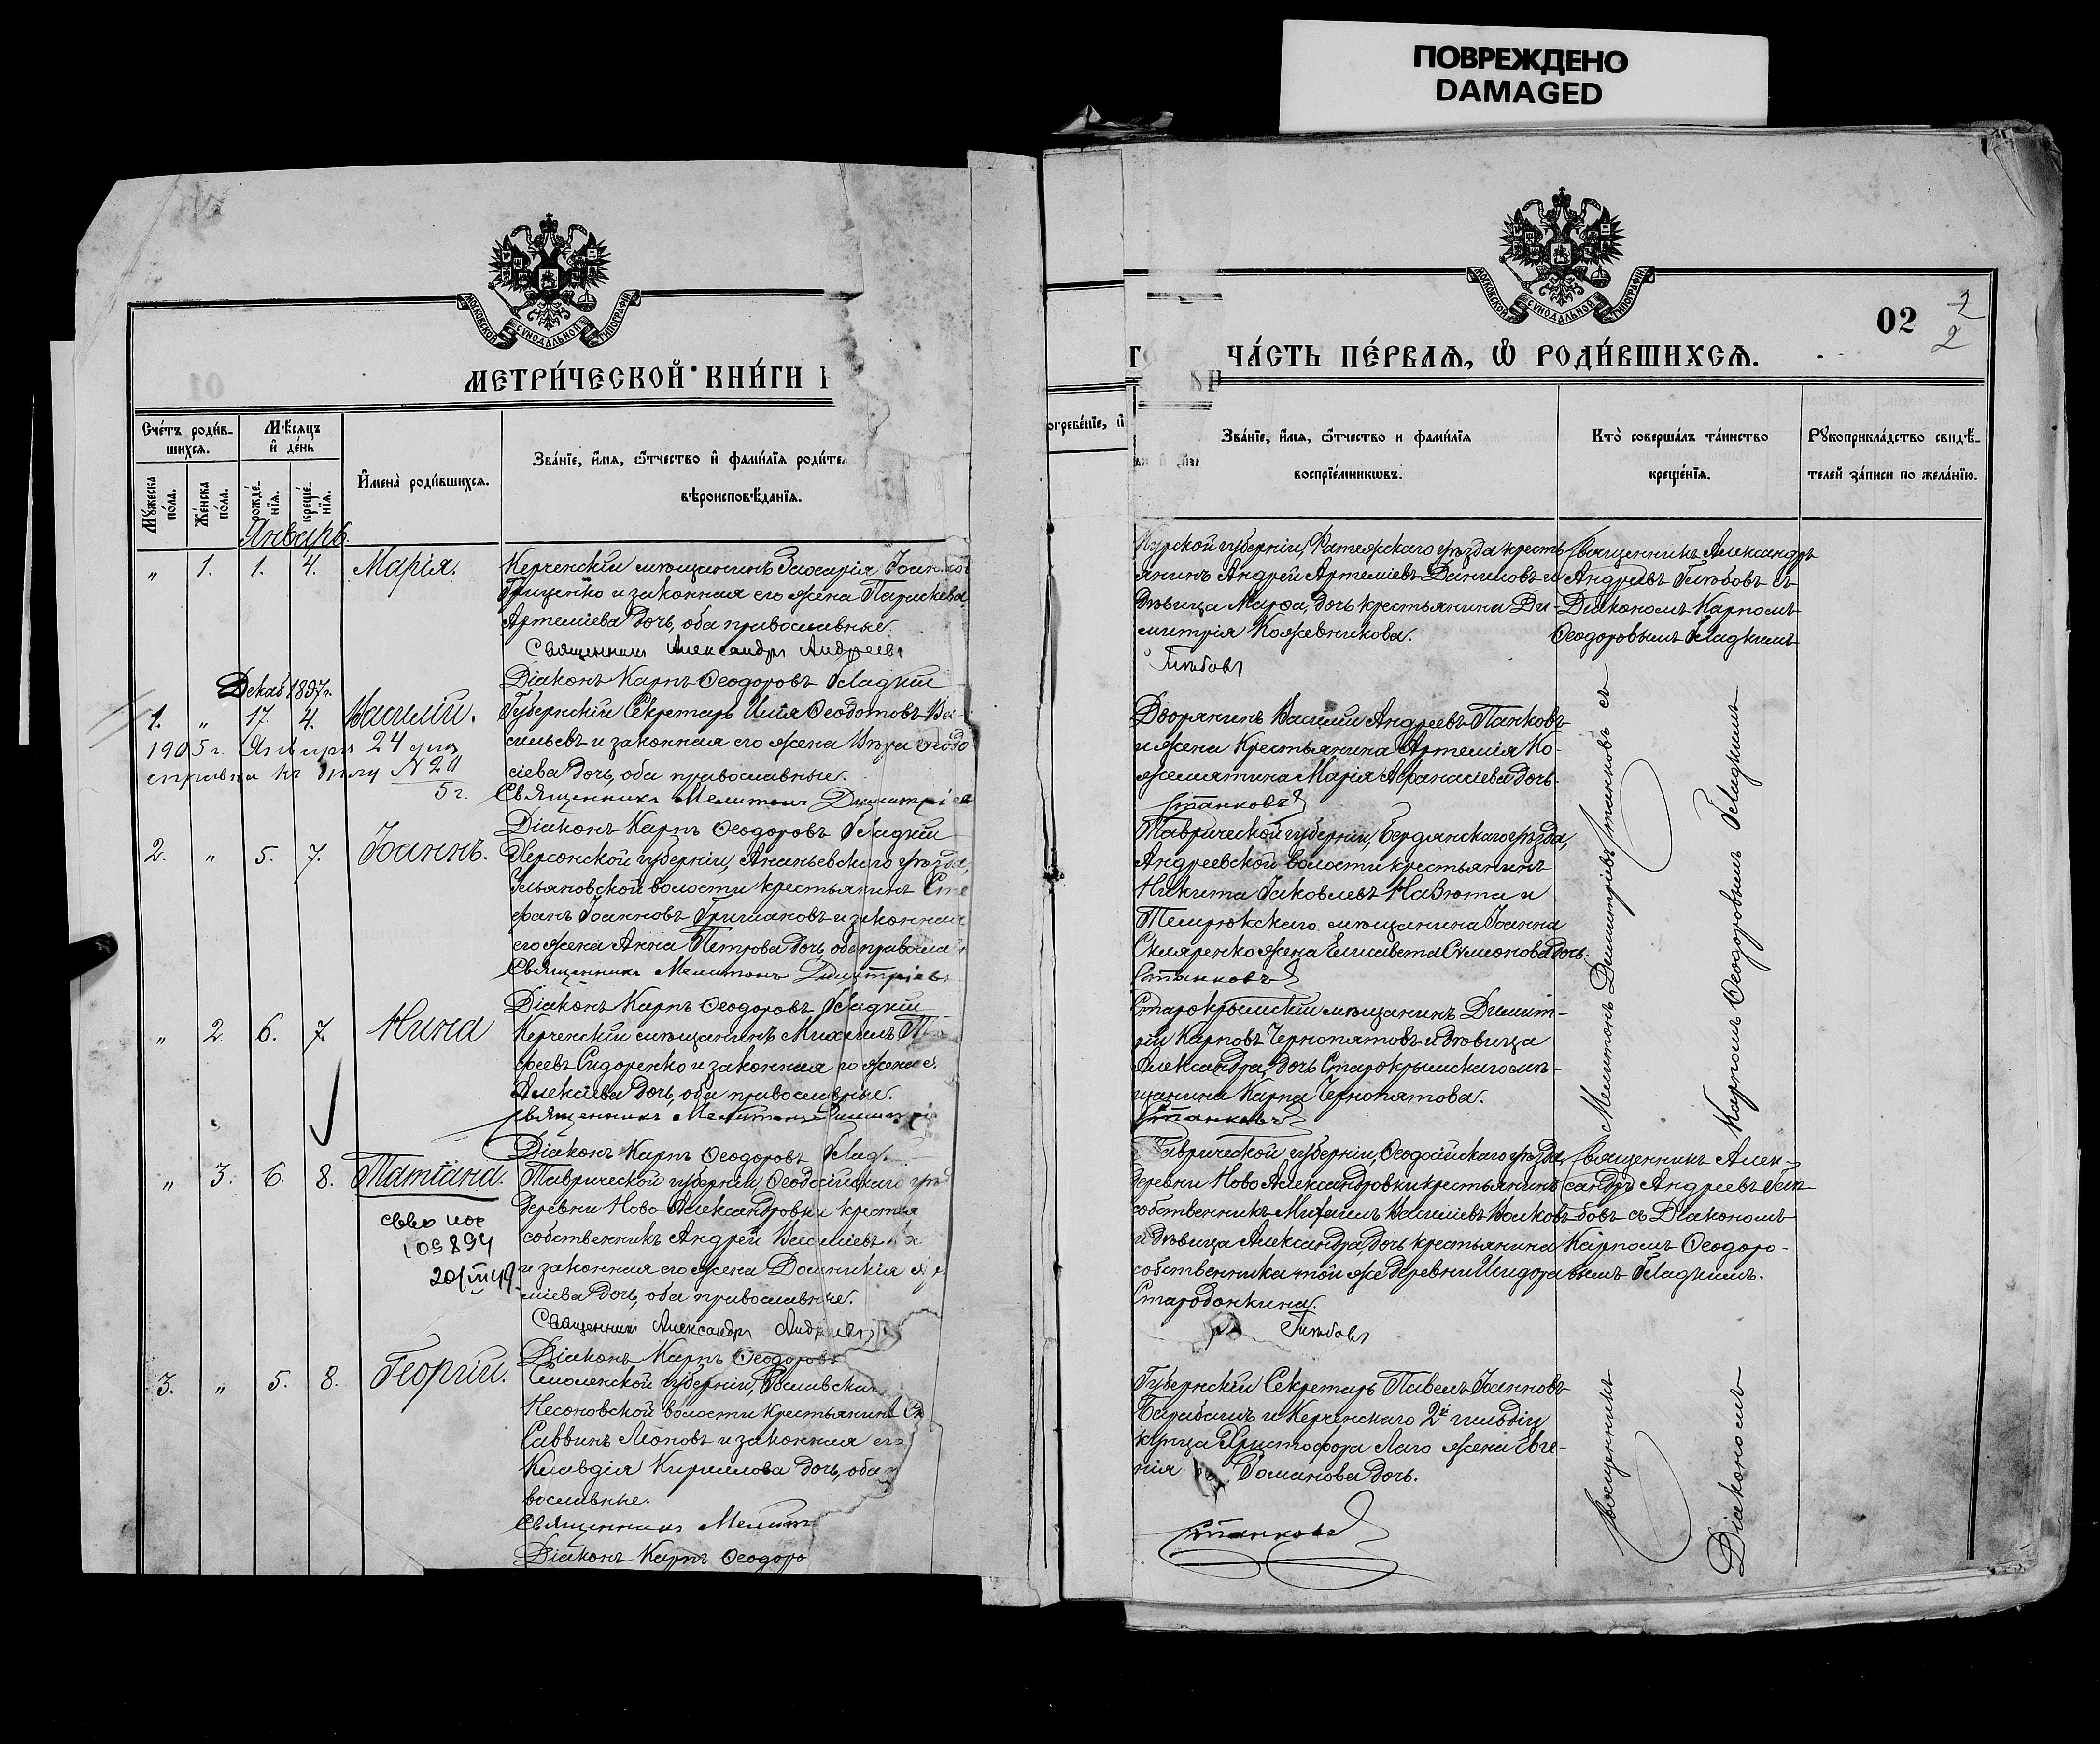 ПОВРЕЖДЕНО
DAMAGED
МОСКОВСКОЙ СѴНОДАЛЬНОЙ ТИПОГРАФІИ
МЕТРИ́ЧЕСКОЙ КНИ́ГИ
Сче́тъ роди́в-
шихся.
Мѣ́сяцъ
и҆ де́нь
Мꙋ́жеска по́ла.
Же́нска по́ла.
рожде́нїя.
креще́нїя.
И҆мена̀ роди́вшихся.
Зва́нїе, и҆́мя, ѻ҆́тчество и҆ фами́лїя роди́тел
вѣроисповѣ́данїя.
Январь.
„ 1. 1. 4. Марія.
Керченскій мѣщанинъ Захарія
Гриценко и законная его жена Параскева
Артеміева дочь, оба православные.
Священникъ Александръ Андреевъ
Діаконъ Карпъ Ѳеодоровъ Гладкій
Декаб. 1897 г.
1. „ 17. 4. Василій.
Губернскій Секретарь Илія Ѳеодотовъ Ва
сильевъ и законная его жена Вѣра Ѳеодо
сіева дочь, оба православные.
1905 г. Января 24 дня
справка къ дѣлу № 20
5 г.
Священникъ Мелитонъ Димитріев
Діаконъ Карпъ Ѳеодоровъ Гладкій
2. „ 5. 7. Іоаннъ.
Херсонской губерніи, Ананьевского уѣзда,
Ульяновской волости крестьянинъ Сте
фанъ Іоанновъ Гришановъ и законная
его жена Анна Петрова дочь, оба правосла
Священникъ Мелитонъ Димитріевъ
Діаконъ Карпъ Ѳеодоровъ Гладкій
„ 2. 6. 7. Нина
Керченскій мѣщанинъ Михаилъ
феевъ Сидоренко и законная его жена
Алексіева дочь, оба православные.
Священникъ Мелитонъ Димитрі
Діаконъ Карпъ Ѳеодоровъ Глад
„ 3. 6. 8. Татіана.
Таврической губерніи, Ѳеодосійскаго уѣз
деревни Ново Александровки крестья
собственникъ Андрей Василіевъ
и законная его жена Домникія
міева дочь, оба православные.
109894
20/III 49
Священникъ Александръ Андреевъ
Діаконъ Карпъ Ѳеодоровъ
3. „ 5. 8. Георгій.
Смоленской губерніи, Рославскаг
Несоновской волости крестьянинъ
Саввинъ Леоновъ и законная его
Клавдія Кириллова дочь, оба п
вославные.
Священникъ Мелит
Діаконъ Карпъ Ѳеодоро
огребе́нїе, и҆
МОСКОВСКОЙ СѴНОДАЛЬНОЙ ТИПОГРАФІИ
02
2
2
ЧА́СТЬ ПЕ́РВАЯ, Ѡ҆ РОДИ́ВШИХСЯ.
Зва́нїе, и҆́мя, ѻ҆́тчество и фами́лїя
воспрїе́мникѡвъ.
Кто̀ соверша́лъ та́инство
креще́нїя.
Рꙋкоприкла́дство свидѣ́-
телей за́писи по жела́нїю.
Курской губерніи, Фатежскаго уѣзда кресть
янинъ Андрей Артеміевъ Даниловъ и
дѣвица Марѳа, дочь крестьянина Ди-
митрія Кожевникова.
Глѣбовъ
Священникъ Александръ
Андреевъ Глѣбовъ съ
Діакономъ Карпомъ
Ѳеодоровымъ Гладкимъ
Дворянинъ Василій Андреевъ Панковъ
и жена крестьянина Артемія Ко-
жемятина Марія Аѳанасіева дочь.
Станковъ
Таврической губерніи, Бердянскаго уѣзда,
Андреевской волости крестьянинъ
Никита Іаковлевъ Навюта и
Темрюкскаго мѣщанина Іоанна
Скляренко жена Елисавета Симонова дочь.
Станковъ
Старокрымскій мѣщанинъ Димит-
рій Карповъ Чернопятовъ и дѣвица
Александра, дочь Старокрымскаго мѣ-
щанина Карпа Чернопятова.
Станковъ
Мелитонъ Димитріевъ Станковъ съ
Карпомъ Ѳеодоровымъ Гладкимъ
Таврической губерніи, Ѳеодосійскаго уѣзда,
деревни Ново Александровки крестьянинъ
собственникъ Михаилъ Василіевъ Волковъ
и дѣвица Александра, дочь крестьянина
собственника той же деревни Исидора
Стародонкина.
Глѣбовъ
Священникъ Алек-
сандръ Андреевъ Глѣ-
бовъ съ Діакономъ
Карпомъ Ѳеодоро-
вымъ Гладкимъ.
Губернскій Секретарь Павелъ Іоанновъ
Барабашъ и Керченскаго 2й гильдіи
купца Христофора Лаго жена Евге-
нія Романова дочь.
Станковъ
Священникъ
Діакономъ